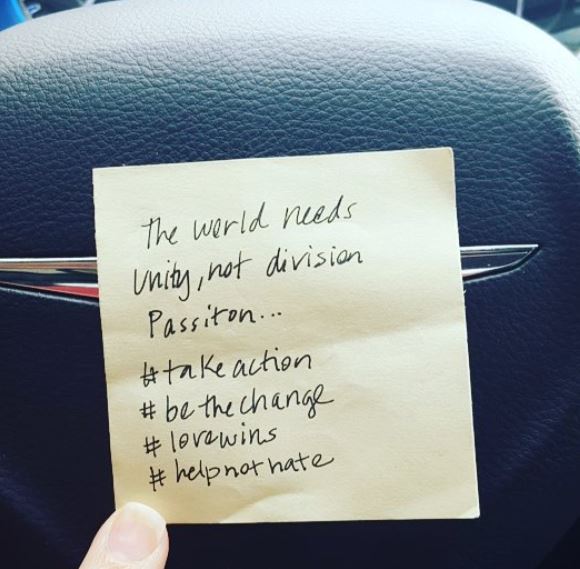 The world needs
Unity, not division
Passiton...
#takeaction
#bethechange
#lovewins
#helpnothate